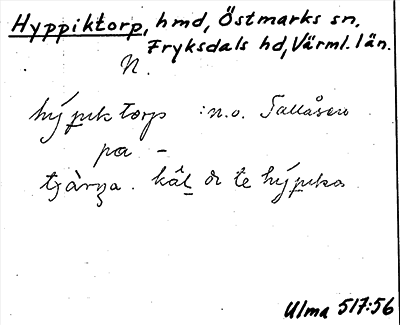 Hyppiktorp, hmd, Östmarks sn.
Fryksdals hd, Värml. län.
N.
hýpık torp : n.o. Tallåsen
pa -
kâḻ di te hýpıka
Ulma 517:56